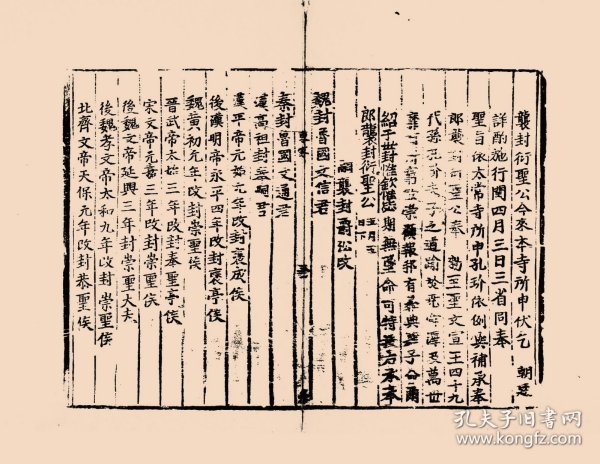 襲封衍聖公今來本寺所申伏乞 朝廷
詳酌施行閏四月三日三省同奉
聖旨依太常寺所申孔玠依例與補承奉
郎襲封衍聖公奉 勅至聖文宣王四十九
代孫孔玠夫子之道於萬世
報有典子
紹于世封惟欽無命可特授右承奉
郎襲封衍聖公 五月五日下
襲封沿改
魏封魯國文信君
秦封魯國文通君
漢高祖封奉嗣君
漢平帝元始元年改封褒成侯
後漢明帝永平四年改封褒亭侯
魏黃初元年改封崇聖侯
晉武帝太始三年改封奉聖亭侯
宋文帝元嘉三年改封崇聖侯
後魏文帝延興三年封崇聖大夫
後魏孝文帝太和九年改封崇聖侯
北齊文帝天保元年改封恭聖侯
孔夫子旧书网
www.kongfz.com